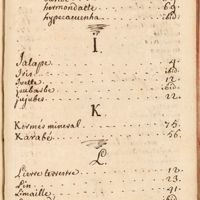 hermondatte . . . 60.
hypecacuenha . . . ibid.
I
Jalappe . . . 9.
Iris . . . ibid
Ivette . . . 12.
jusbasbe . . . ibid
jujubes . . . 22.
K
Kermes mineral . . . 75.
Karabé . . . 56.
L
Lierre terrestre . . . 12.
Lin . . . 23.
Limaille . . . 91.